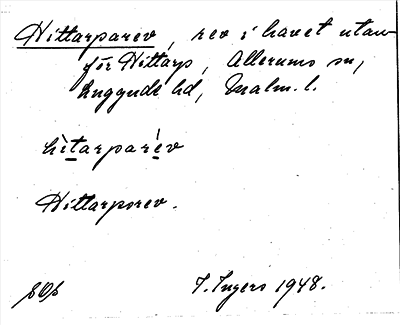 Hittarparev, rev i havet utan-
för Hittarp, Allerums sn,
Luggude hd, Malm. l.
hìtarparév
Hittarporev.
SOp T. Ingers 1948.